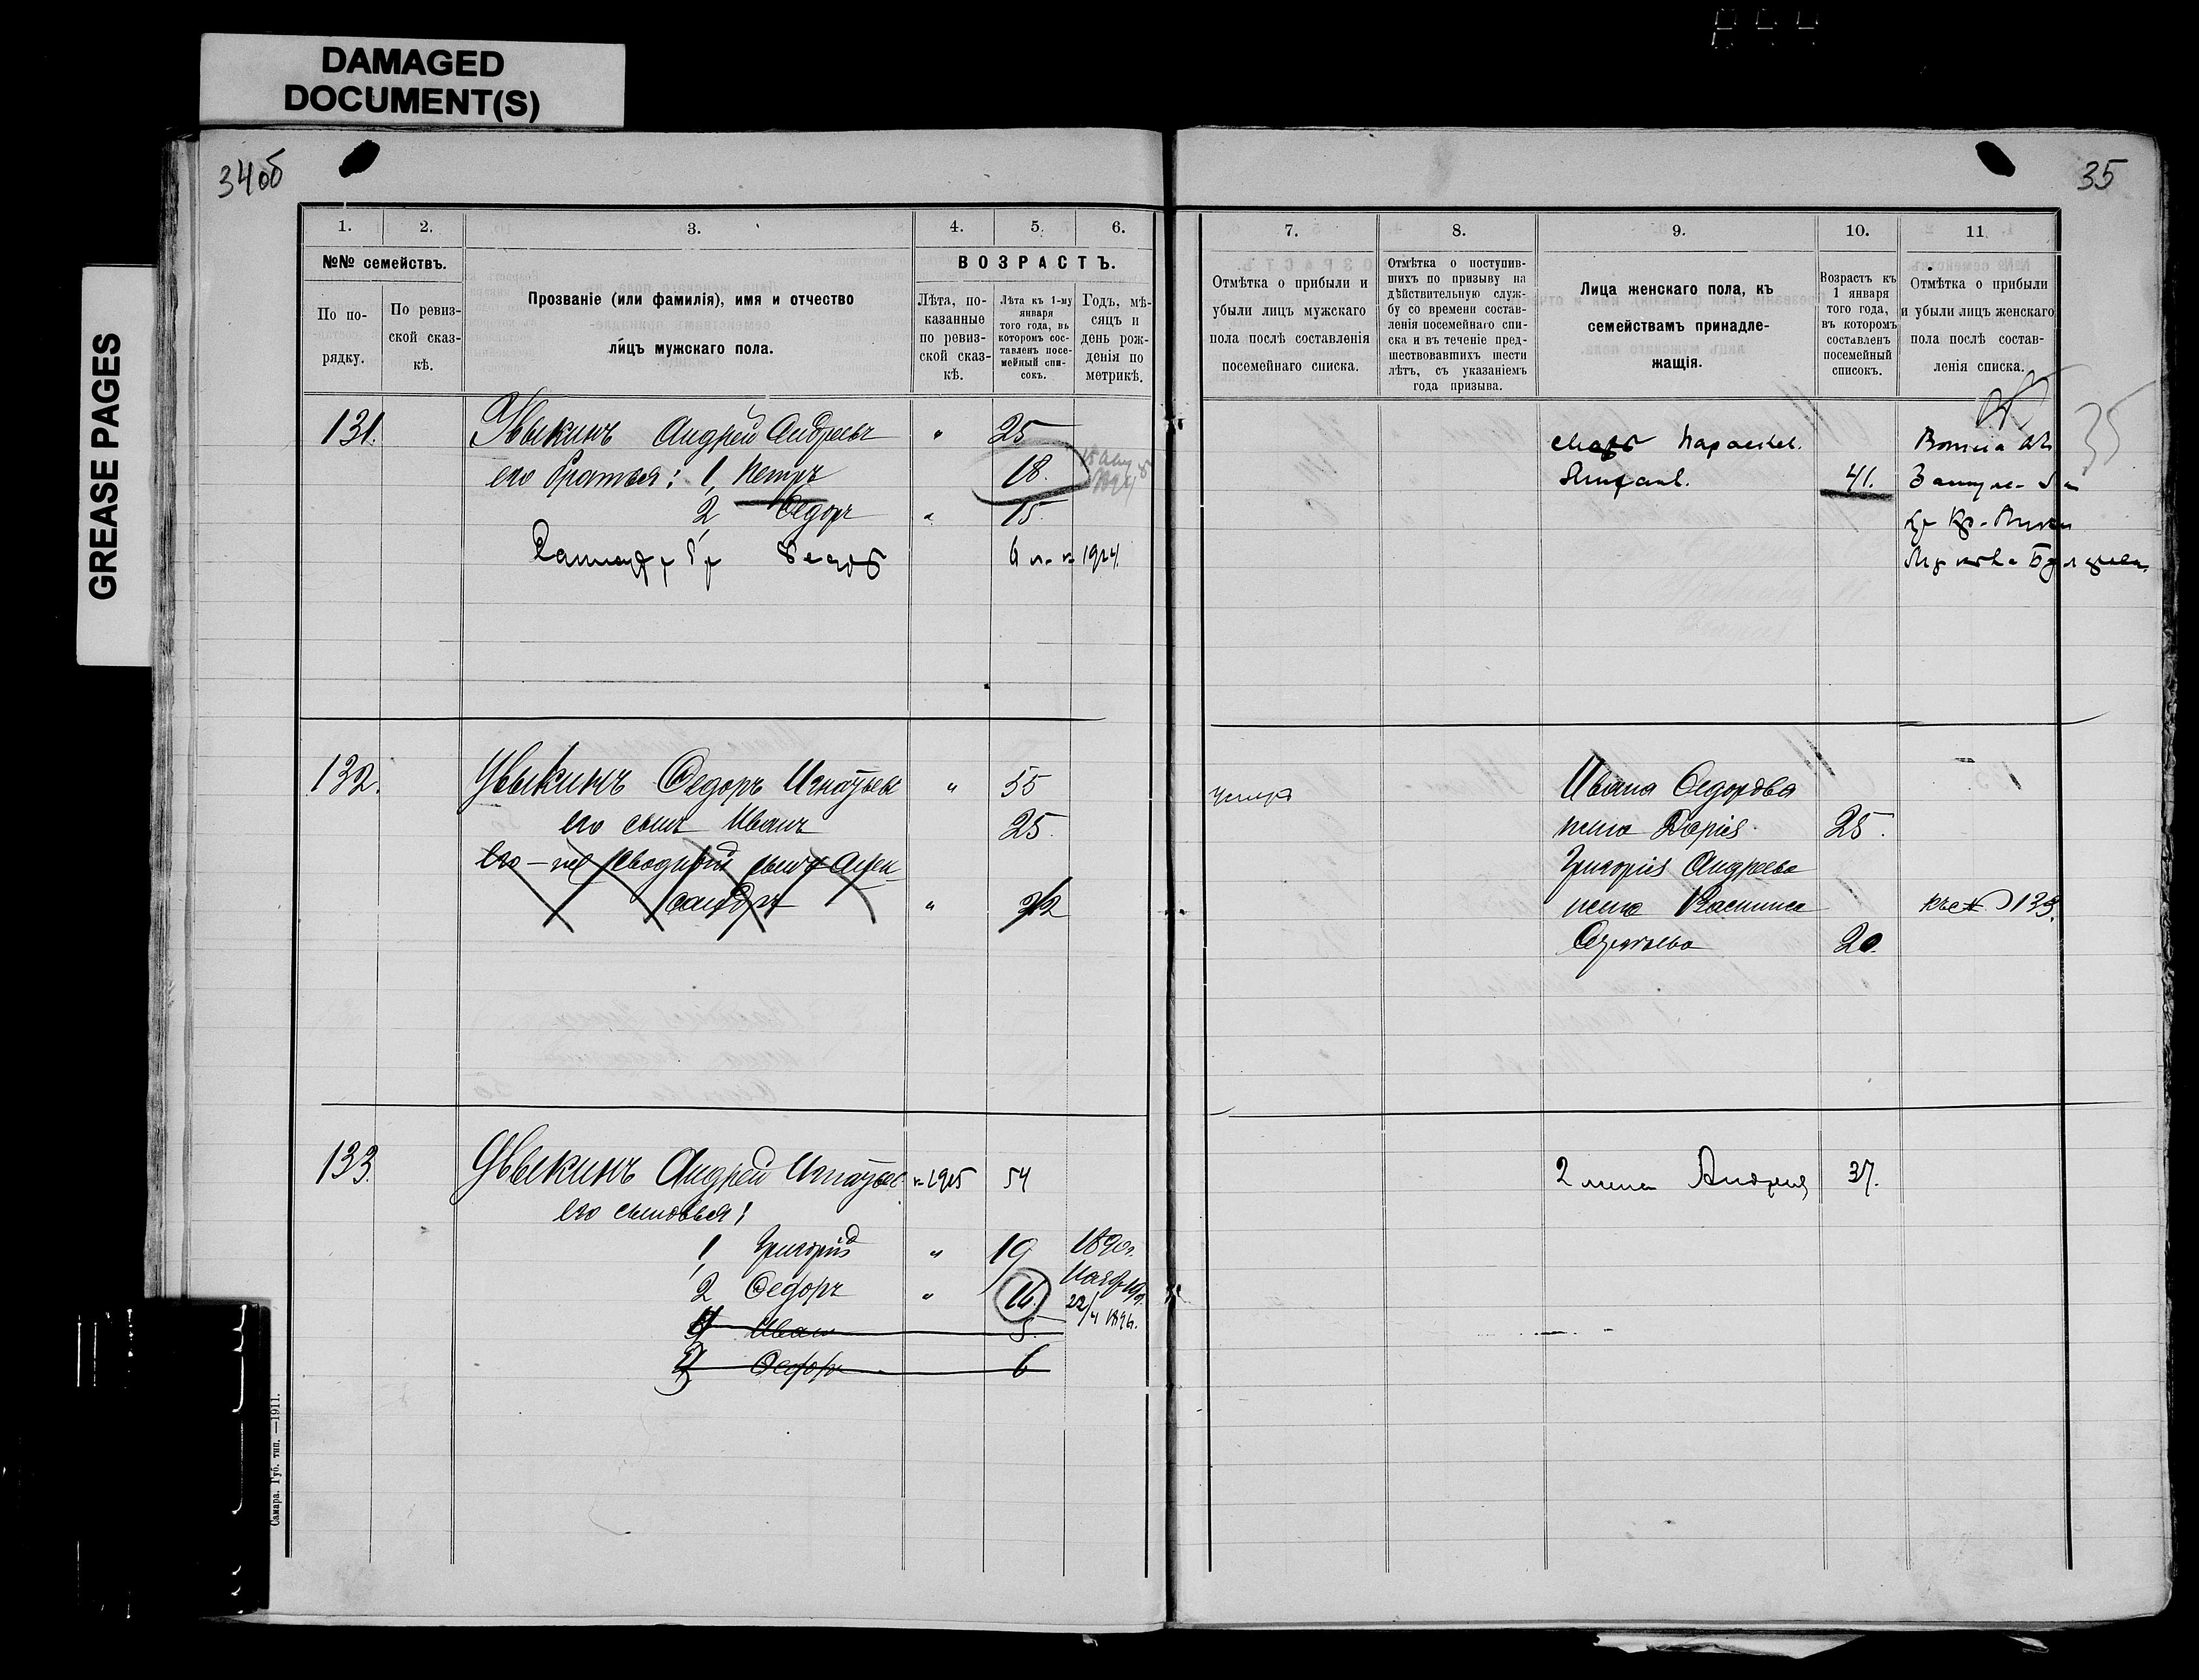 DAMAGED
DOCUMENT(S)
GREASE PAGES
34об
35
1.
2.
3.
4.
5.
6.
№№ семействъ.
По порядку.
По ревизской сказкѣ.
Прозваніе (или фамилія), имя и отчество
лицъ мужскаго пола.
ВОЗРАСТЪ.
Лѣта, показанные по ревизской сказкѣ.
Лѣта къ 1-му января того года, въ которомъ составленъ посемейный списокъ.
Годъ, мѣсяцъ и день рожденія по метрикѣ.
7.
8.
9.
10.
11
Отмѣтка о прибыли и
убыли лицъ мужскаго
пола послѣ составленія
посемейнаго списка.
Отмѣтка о поступив-
шихъ по призыву на
дѣйствительную служ-
бу со времени состав-
ленія посемейнаго спи-
ска и въ теченіе пред-
шествовавшихъ шести
лѣтъ, съ указаніемъ
года призыва.
Лица женскаго пола, къ
семействамъ принадле-
жащія.
Возрастъ къ
1 января
того года,
въ которомъ
составленъ
посемейный
списокъ.
Отмѣтка о прибыли
и убыли лицъ женскаго
пола послѣ состав-
ленія списка.
35
131. Увыкинъ Андрей Андреевъ " 25
его братья: 1, Петръ 18.
2, Федоръ " 15.
1924
мать Параскев.
41.
132. Увыкинъ Федоръ Игнатьев " 55
его сынъ Иванъ 25.
сводный сынъ Алек-
сандръ " 22
умеръ
Ивана Федорова
жена Дарія 25.
Григорія Андреева
жена 20.
133.
133. Увыкинъ Андрей Игнатьев 54
его сыновья:
1, Григорій " 19 1890г.
2 Федоръ " 16. 22/4 1896.
Иван 5.
Федоръ 6
2 жена Андрея 37.
Самара. Губ. тип. —1911.